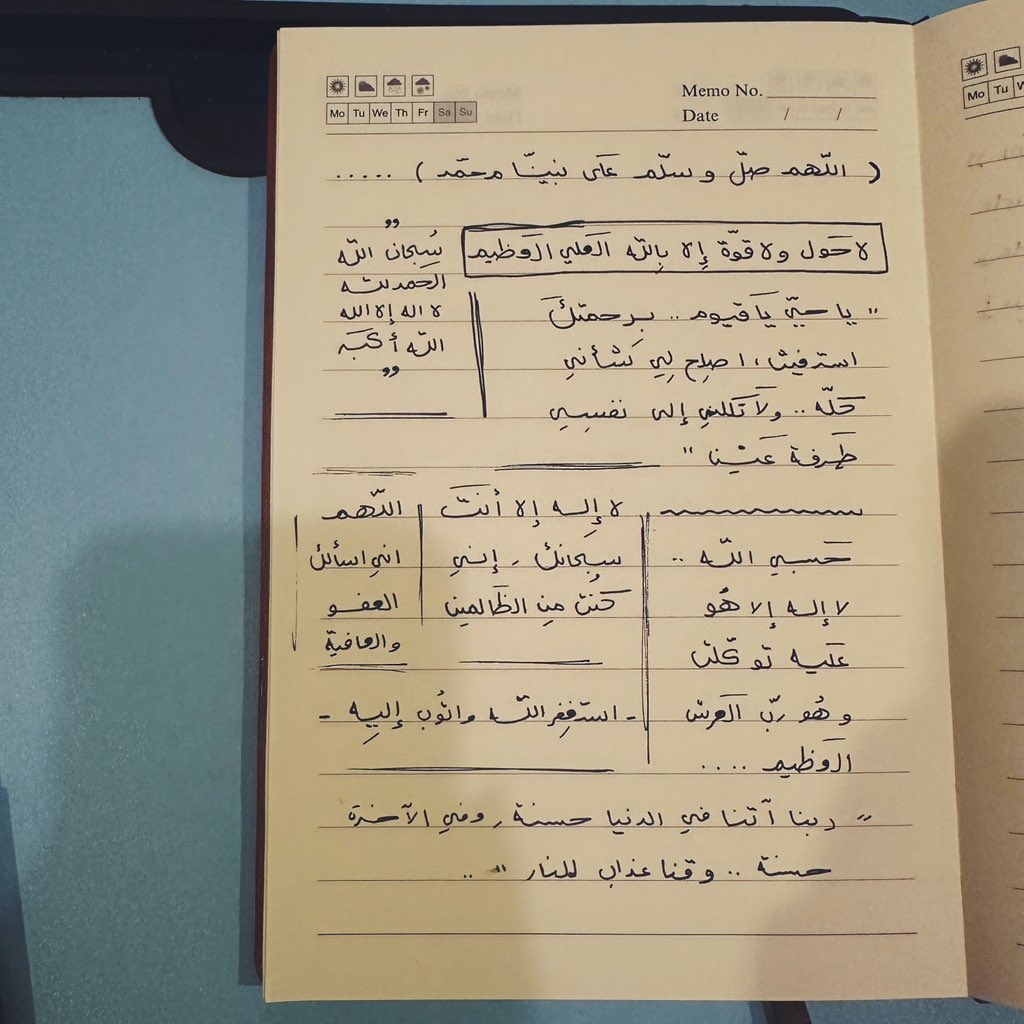 Memo No.
Mo Tu We Th Fr Sa Su
Date / /
( اللّهم صلّ وسلّم عَلَى نبيّنا محمّد ) .....
لا حَول ولا قوّة إِلا بِاللّه العَلي العَظيم
"
سُبحان اللّه
الحمد للّه
لا اله إلا الله
اللّه أكبَر
"
" يا حيّ يَا قيوم .. بِرحمتكَ
استغيث ، اصلِح لِي شَأني
كلّه .. ولَا تَكلني إلى نفسِي
طَرفة عَين "
حَسبي اللّه ..
لا إله إلا هُو
عَليه توكّلت
وهُو ربّ العَرش
العَظيم ....
لا إِله إلا أنتَ
سبحَانك ، إنني
كُنت مِن الظَالمين
اللّهم
اني اسألك
العفو
والعافيّة
- استغفِر اللّه واتُوب إليهِ -
" ربنا آتنا في الدنيا حسنة , وفي الآخرة
حسنة .. وقنا عذاب النار " ..
Mo Tu W